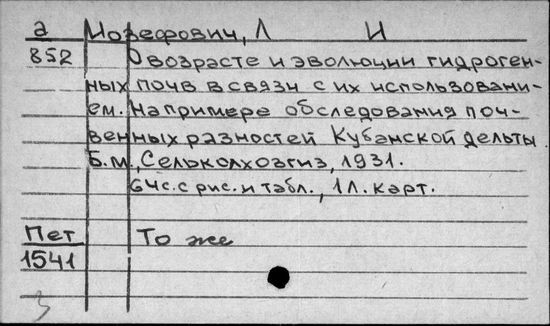 а Иозефович, Л И
852 О возрасте и эволюции гидроген-
ных почв в связи с их использовани-
ем. На примере обследования поч-
венных разностей Кубанской дельты.
Б.м., Сельколхозгиз, 1931.
64с. с рис. и табл., 1 л. карт.
Пет То же
1541
3